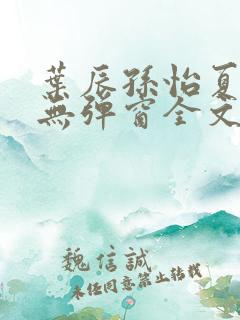 葉辰孫怡夏
無彈窗全文
魏信誠
未經同意禁止轉載